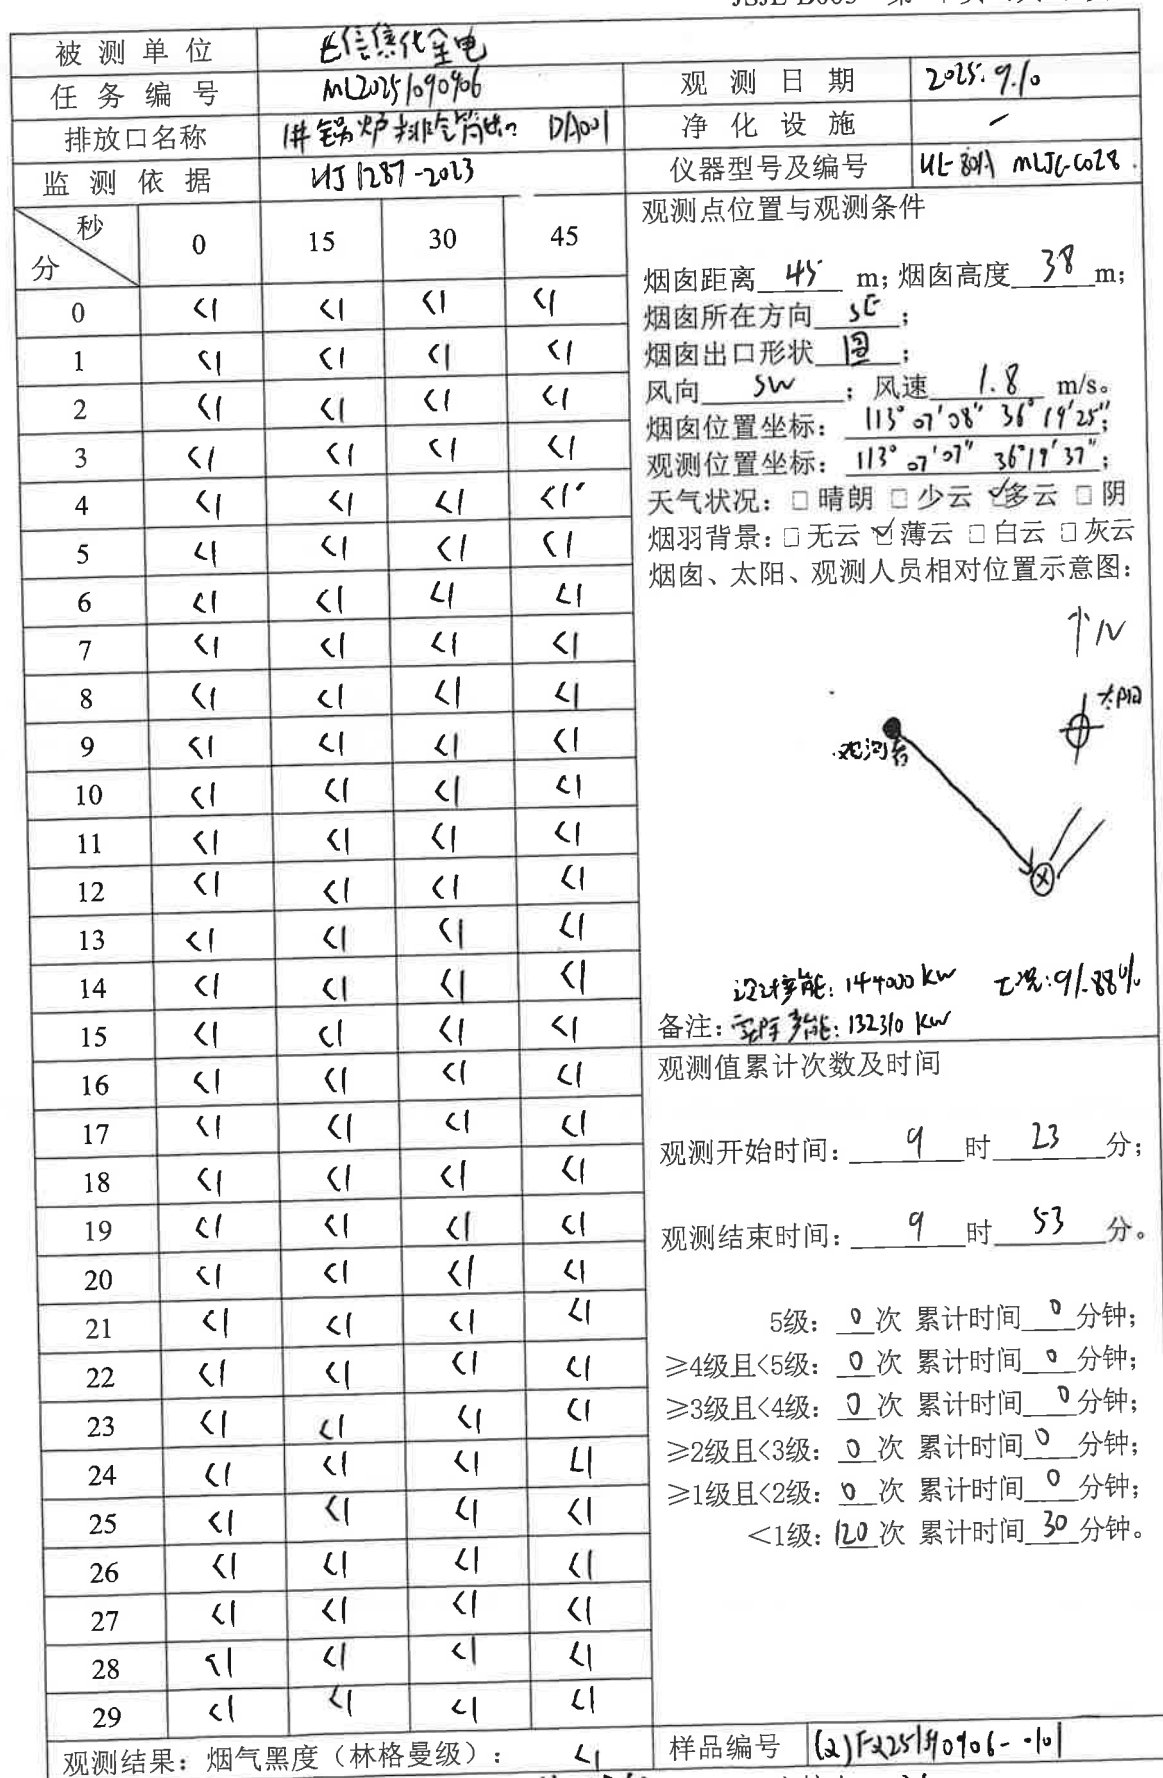 被测单位 信焦化全电
任务编号 ML20251090906 观测日期 2025.9.10
排放口名称 1#锅炉排气筒出口 DA001 净化设施 /
监测依据 HJ 1287-2023 仪器型号及编号 MLJC-C028
秒 分 0 15 30 45
0 <1 <1 <1 <1
1 <1 <1 <1 <1
2 <1 <1 <1 <1
3 <1 <1 <1 <1
4 <1 <1 <1 <1
5 <1 <1 <1 <1
6 <1 <1 <1 <1
7 <1 <1 <1 <1
8 <1 <1 <1 <1
9 <1 <1 <1 <1
10 <1 <1 <1 <1
11 <1 <1 <1 <1
12 <1 <1 <1 <1
13 <1 <1 <1 <1
14 <1 <1 <1 <1
15 <1 <1 <1 <1
16 <1 <1 <1 <1
17 <1 <1 <1 <1
18 <1 <1 <1 <1
19 <1 <1 <1 <1
20 <1 <1 <1 <1
21 <1 <1 <1 <1
22 <1 <1 <1 <1
23 <1 <1 <1 <1
24 <1 <1 <1 <1
25 <1 <1 <1 <1
26 <1 <1 <1 <1
27 <1 <1 <1 <1
28 <1 <1 <1 <1
29 <1 <1 <1 <1
观测点位置与观测条件
烟囱距离 45 m；烟囱高度 38 m；
烟囱所在方向 SE ；
烟囱出口形状 圆 ；
风向 SW ；风速 1.8 m/s。
烟囱位置坐标： 113°07'08" 36°19'25"；
观测位置坐标： 113°07'07" 36°19'37"；
天气状况：□晴朗 □少云 ☑多云 □阴
烟羽背景：□无云 ☑薄云 □白云 □灰云
烟囱、太阳、观测人员相对位置示意图：
↑N
太阳
观测者
设计产能：144000 kw 工况：91.88%
备注：实际产能：132310 kw
观测值累计次数及时间
观测开始时间： 9 时 23 分；
观测结束时间： 9 时 53 分。
5级： 0 次 累计时间 0 分钟；
≥4级且<5级： 0 次 累计时间 0 分钟；
≥3级且<4级： 0 次 累计时间 0 分钟；
≥2级且<3级： 0 次 累计时间 0 分钟；
≥1级且<2级： 0 次 累计时间 0 分钟；
<1级： 120 次 累计时间 30 分钟。
观测结果：烟气黑度（林格曼级）： <1 样品编号